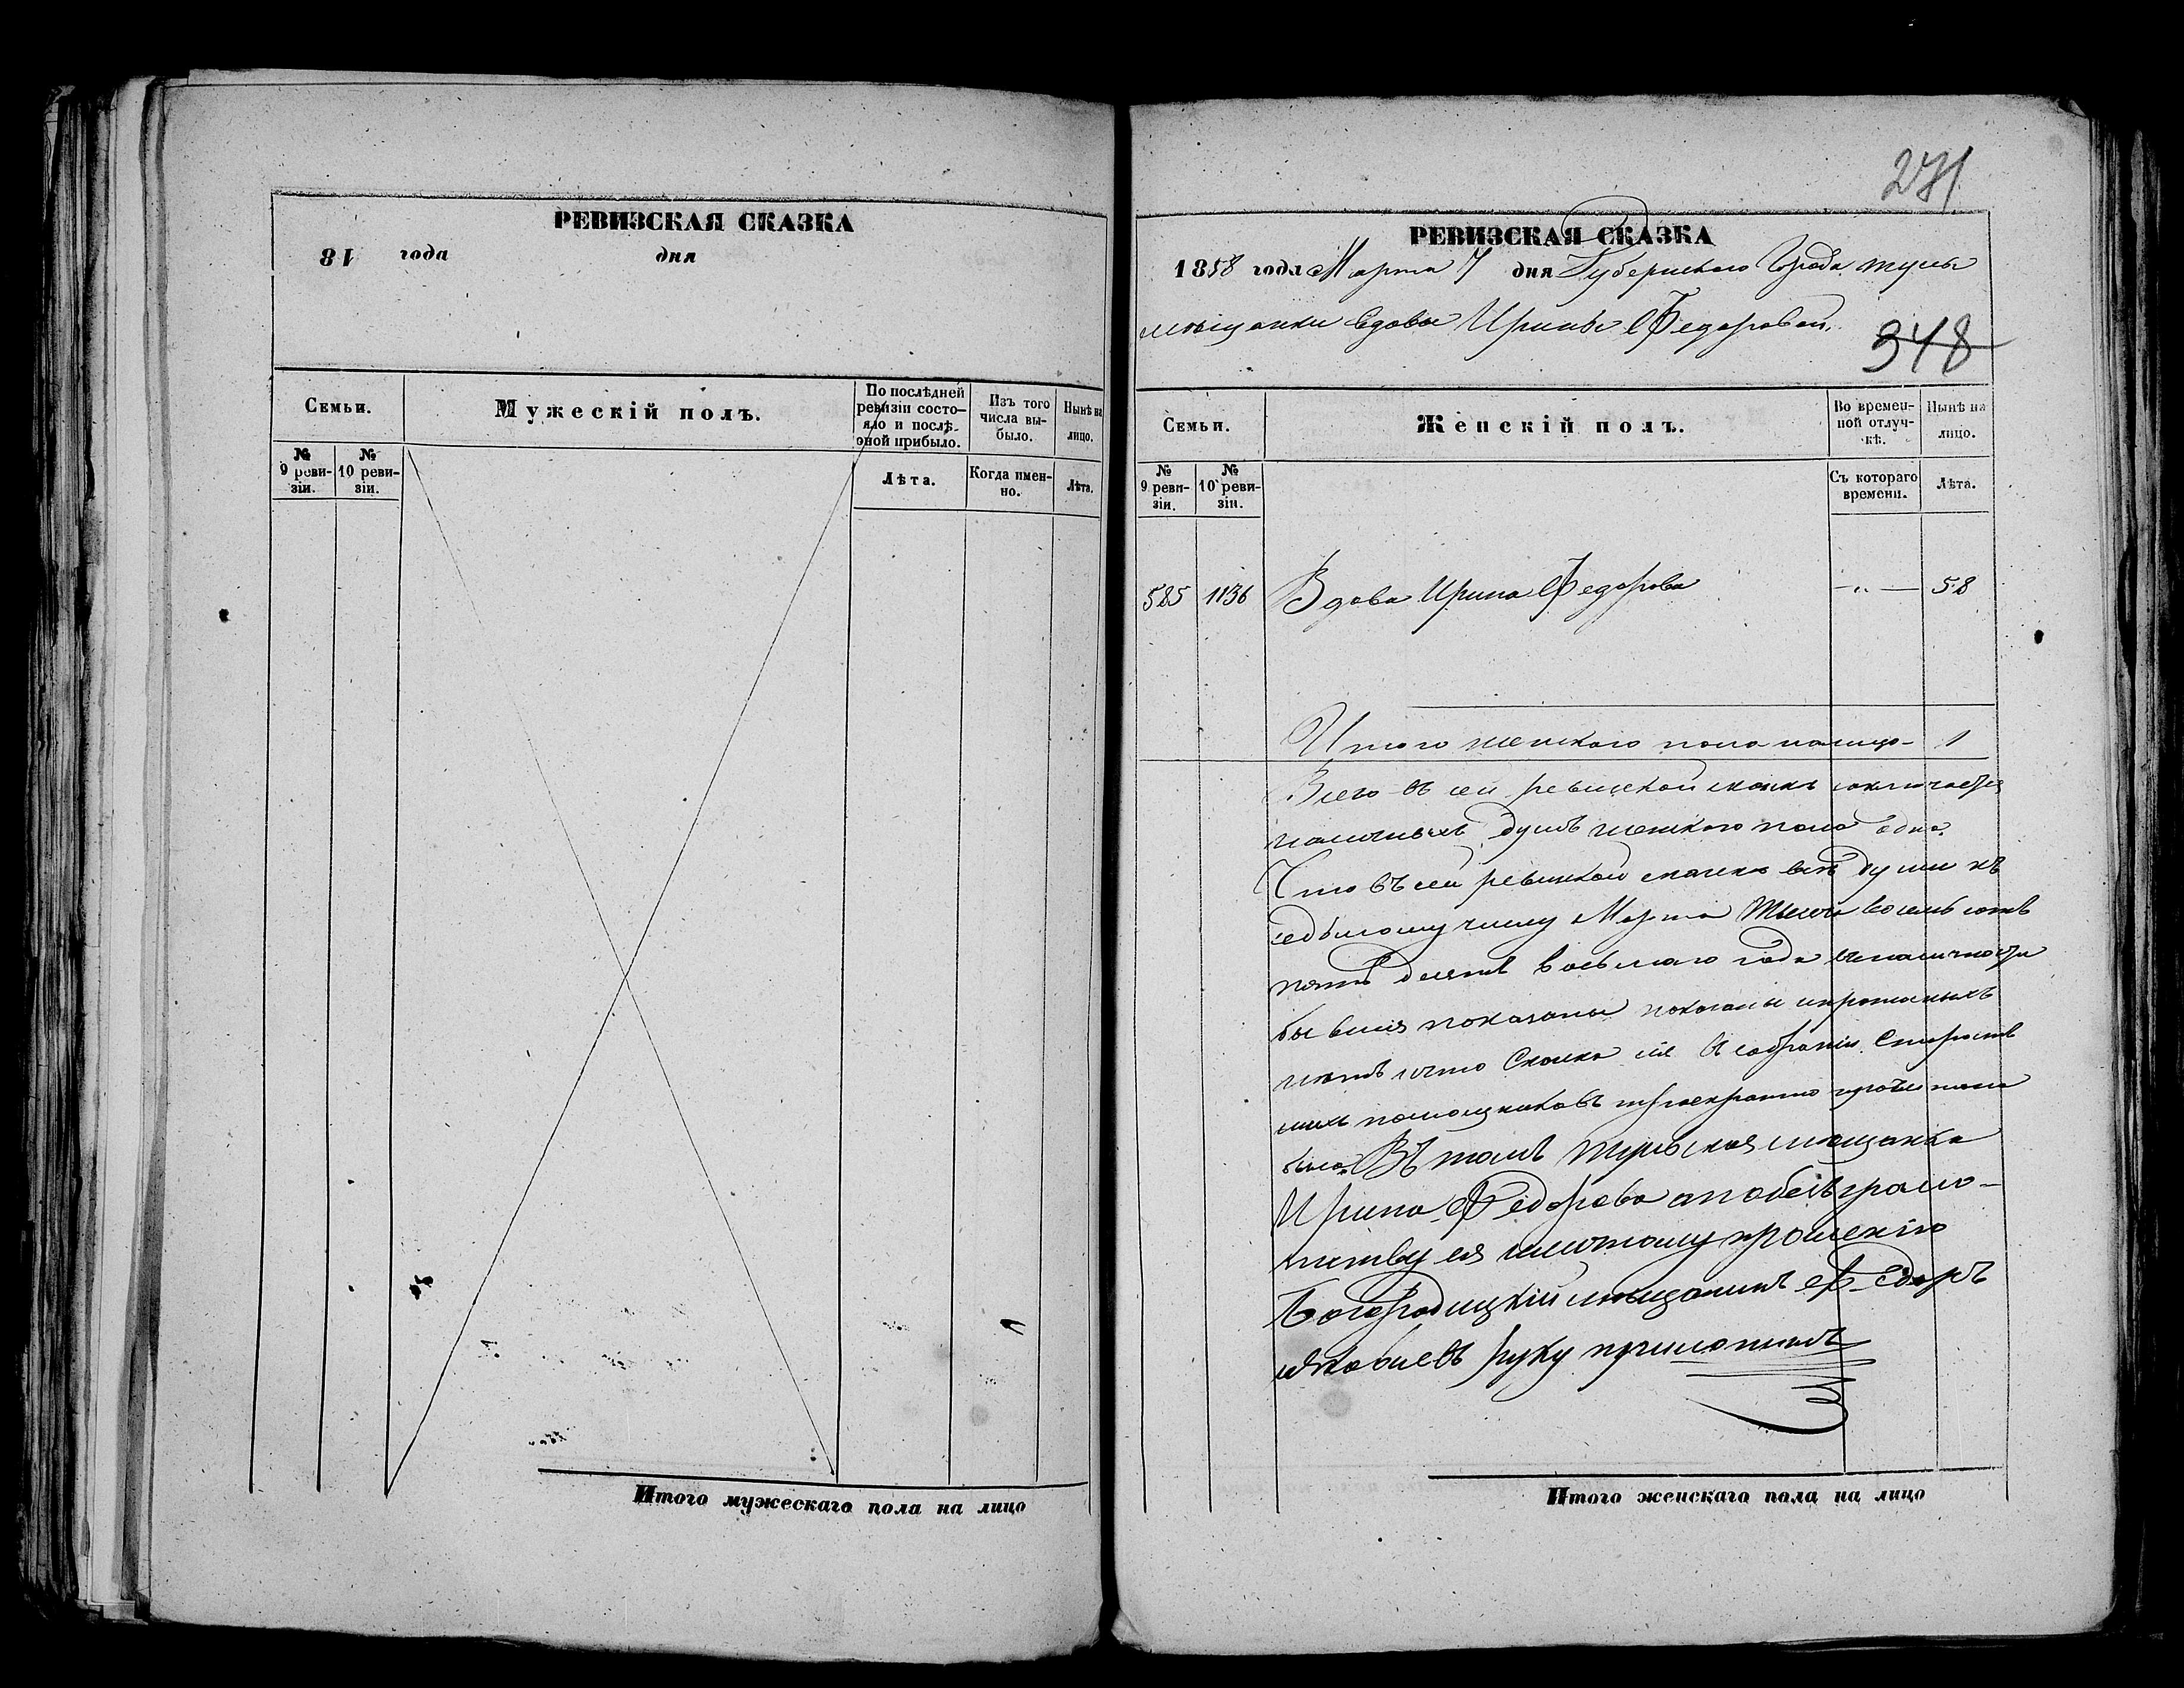 РЕВИЗСКАЯ СКАЗКА
18 года дня
Семьи.
Мужескій полъ.
По послѣдней ревизіи состояло и послѣ оной прибыло.
Изъ того числа выбыло.
Нынѣ на лицо.
№ 9 ревизіи.
№ 10 ревизіи.
Лѣта.
Когда именно.
Лѣта.
Итого мужескаго пола на лицо
271
РЕВИЗСКАЯ СКАЗКА
1858 года Марта 7 дня Губернскаго Города тулы
мѣщанки вдовы Ирины Федоровой.
348
Семьи.
Женскій полъ.
Во временной отлучкѣ.
Нынѣ на лицо.
№ 9 ревизіи.
№ 10 ревизіи.
Съ котораго времени.
Лѣта.
585 1136 Вдова Ирина Федорова — „ — 58
Итого женскаго пола налицо - 1
Всего въ сей ревизской сказкѣ заключается
наличныхъ душъ женскаго пола одна.
Что въ сей ревизкой сказке всѣ души къ
седьмому числу Марта тысяча восемь сотъ
пять десятъ восьмаго года
бывшия показаны
нѣтъ и что Сказка сія въ собраніи Старостъ
ихъ помощниковъ троекратно прочитана
была. Въ томъ тульская мещанка
Ирина Федорова а по безъграмо-
тству ея личному прошенію
Богородицкій мѣщанинъ Федоръ
руку приложилъ
Итого женскаго пола на лицо